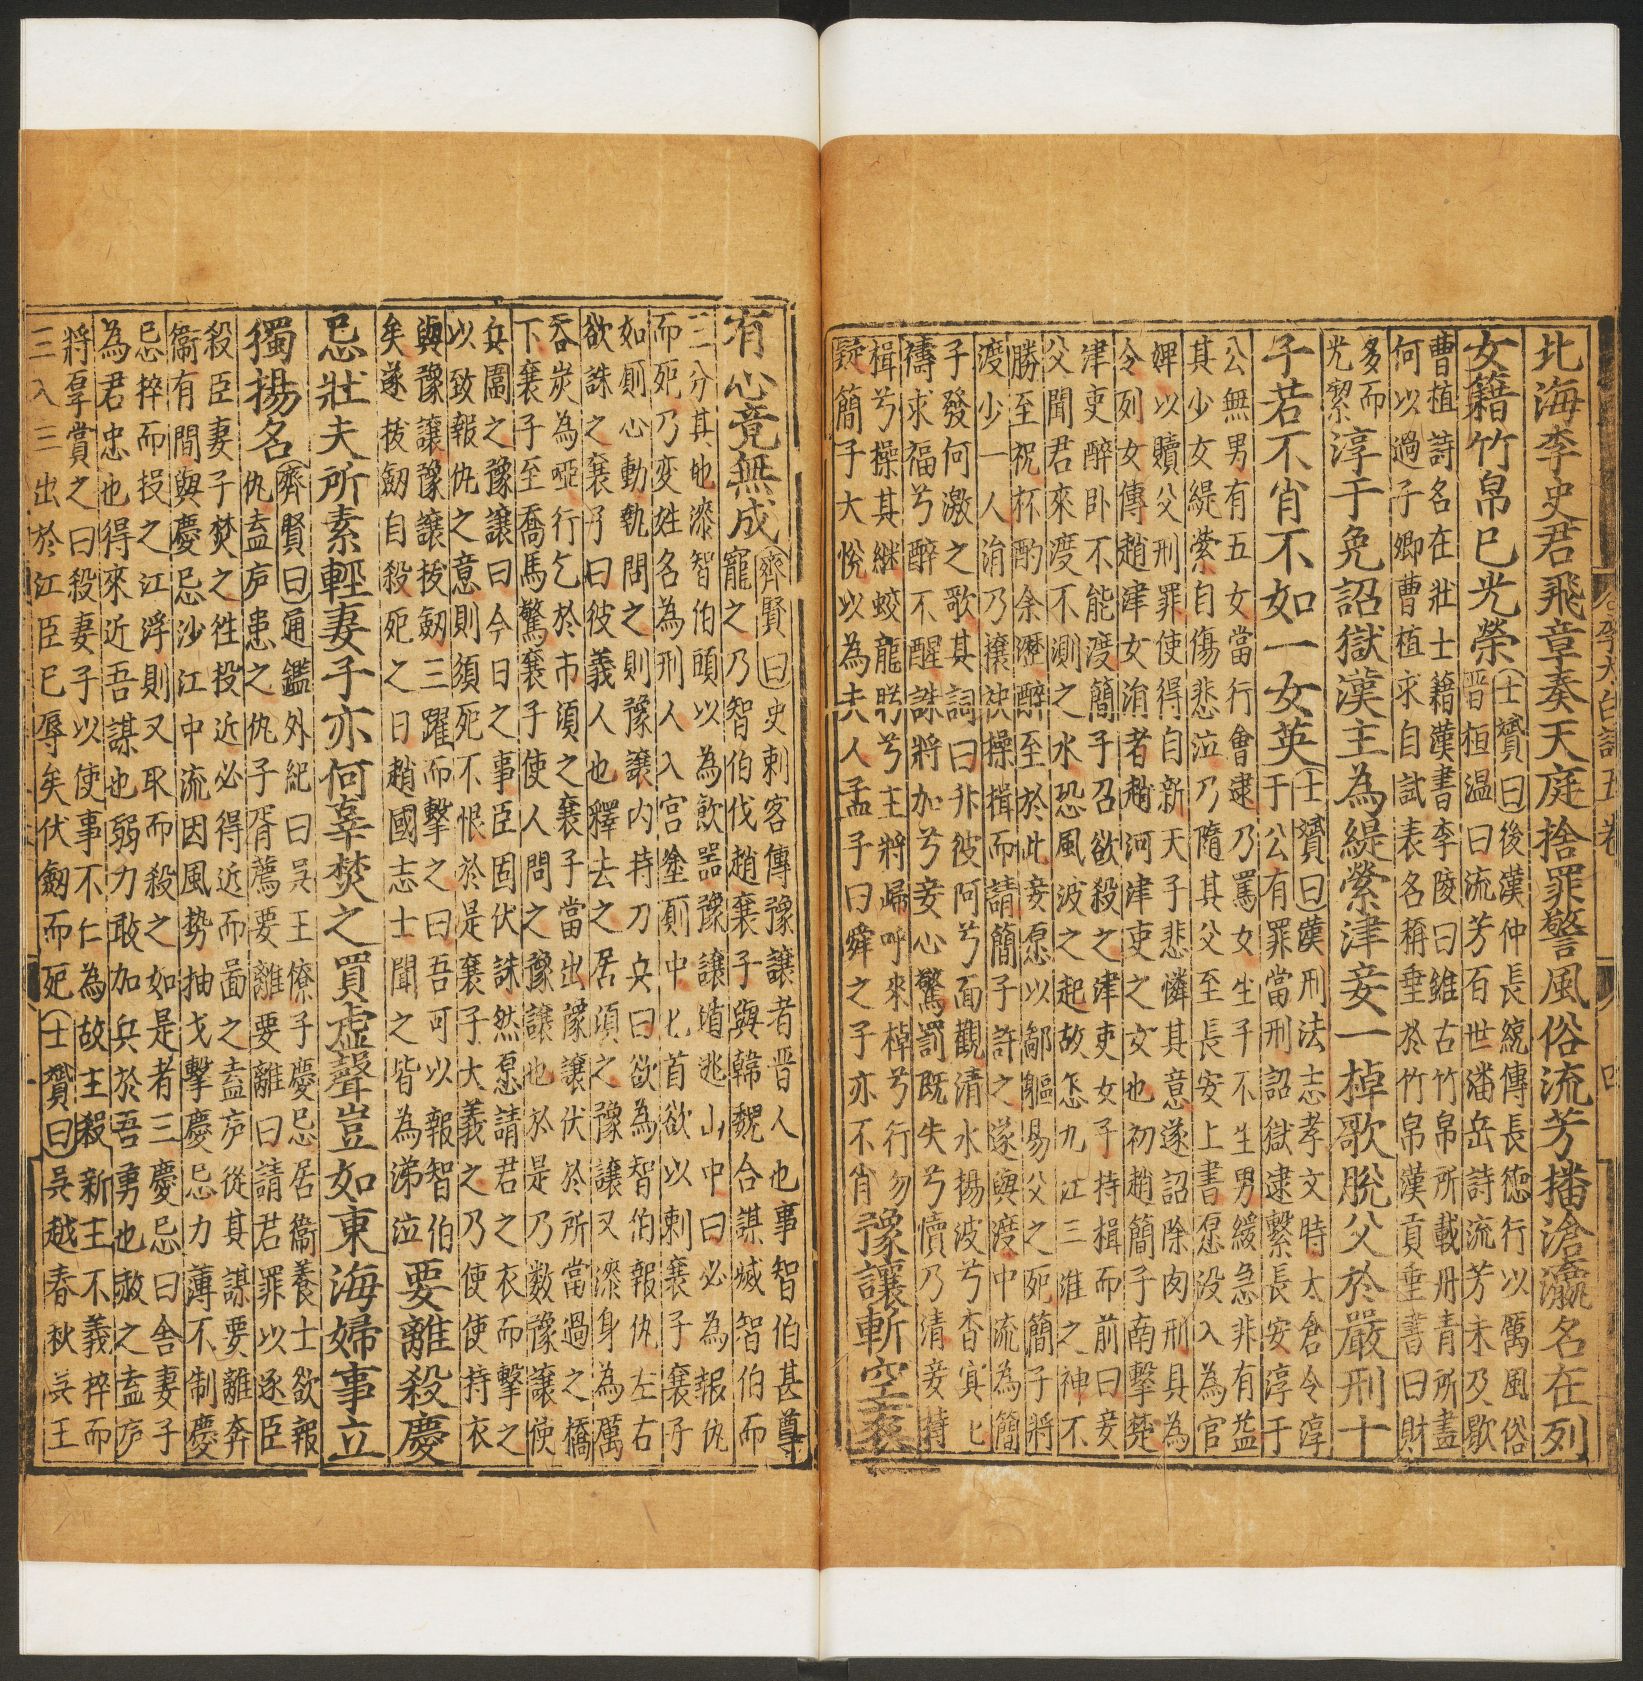 北海李史君飛章奏天庭捨罪警風俗流芳播滄瀛名在列
女籍竹帛已光榮士贇曰後漢仲長統傳長德行以厲風俗
晋桓温曰流芳百世潘岳詩流芳未及歇
曹植詩名在壯士籍漢書李陵曰雖古竹帛所載丹青所畫
何以過子卿曹植求自試表名稱垂於竹帛漢貢垂書曰財
多而
光絜淳于免詔獄漢主為緹縈津妾一棹歌脫父於嚴刑十
子若不肖不如一女英士贇曰漢刑法志孝文時太倉令淳
于公有罪當刑詔獄逮繫長安淳于
公無男有五女當行會逮乃罵女生子不生男緩急非有益
其少女緹縈自傷悲泣乃隋其父至長安上書愿没入為官
婢以贖父刑罪使得自新天子悲憐其意遂詔除肉刑具為
令列女傳趙津女涓者趙河津吏之女也初趙簡子南擊楚
津吏醉卧不能渡簡子召欲殺之津吏女子持揖而前曰妾
父聞君來渡不測之水恐風波之起故怎九江三淮之神不
勝至祝杯酌余瀝醉至於此妾愿以鄙軀易父之死簡子將
渡少一人涓乃攘袂操揖而請簡子許之遂與渡中流為簡
子發何激之歌其詞曰升彼阿兮面觀清水揚波兮杳冥匕
禱求福兮醉不醒誅將加兮妾心驚罰既失兮憒乃清妾持
楫兮操其継蛟龍兮主將歸呼來棹兮行勿
疑簡子大悅以為夫人孟子曰舜之子亦不肖豫讓斬空衮
李太白詩五卷 四
有心竟無成齊賢曰史刺客傳豫讓者晋人也事智伯甚尊
寵之乃智伯伐趙襄子與韓魏合謀㓕智伯而
三分其地漆智伯頭以為飲噐豫讓逃山中曰必為報仇
而死乃変姓名為刑人入宮塗廁中匕首欲以刺襄子襄子
如廁心動執問之則豫讓内持刀兵曰欲為智伯報仇左右
欲誅之襄子曰彼義人也釋去之居須之豫讓又漆身為厲
吞炭為啞行乞於市須之襄子當出豫讓伏於所當過之橋
下襄子至喬馬驚襄子使人問之豫讓也於是乃数豫讓使
兵圍之豫讓曰今日之事臣固伏誅然愿請君之衣而擊之
以致報仇之意則須死不恨於是襄子大義之乃使使持衣
與豫讓豫讓拔劔三躍而擊之曰吾可以報智伯
矣遂拔劔自殺死之日趙國志士聞之皆為涕泣要離殺慶
忌壯夫所素輕妻子亦何辜焚之買虚聲豈如東海婦事立
獨揚名齊賢曰通鑑外紀曰吳王僚子慶忌居衛養士欲報
仇盍庐患之仇子胥薦要離要離曰請君罪以逐臣
殺臣妻子焚之徃投近必得近而啚之盍庐從其謀要離奔
衞有間與慶忌沙江中流因風势抽戈擊慶忌力薄不制慶
忌捽而投之江浮則又取而殺之如是者三慶忌曰舍妻子
為君忠也得來近吾謀也弱力敢加兵於吾勇也赦之盍庐
將羣賞之曰殺妻子以使事不仁為故主殺新主不義捽而
三入三出於江臣已辱矣伏劔而死士贇曰吳越春秋吴王